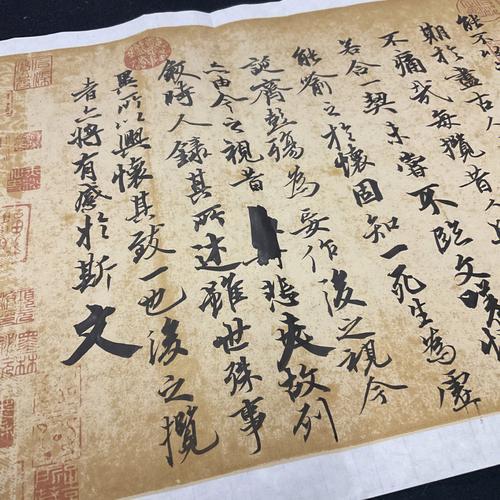 能不以
期於盡古人
不痛哉每攬昔人
若合一契未嘗不臨文嗟悼
能喻之於懷固知一死生為虛
誕齊彭殤為妄作後之視今
亦由今之視昔悲夫故列
敘時人錄其所述雖世殊事
異所以興懷其致一也後之攬
者亦將有感於斯文